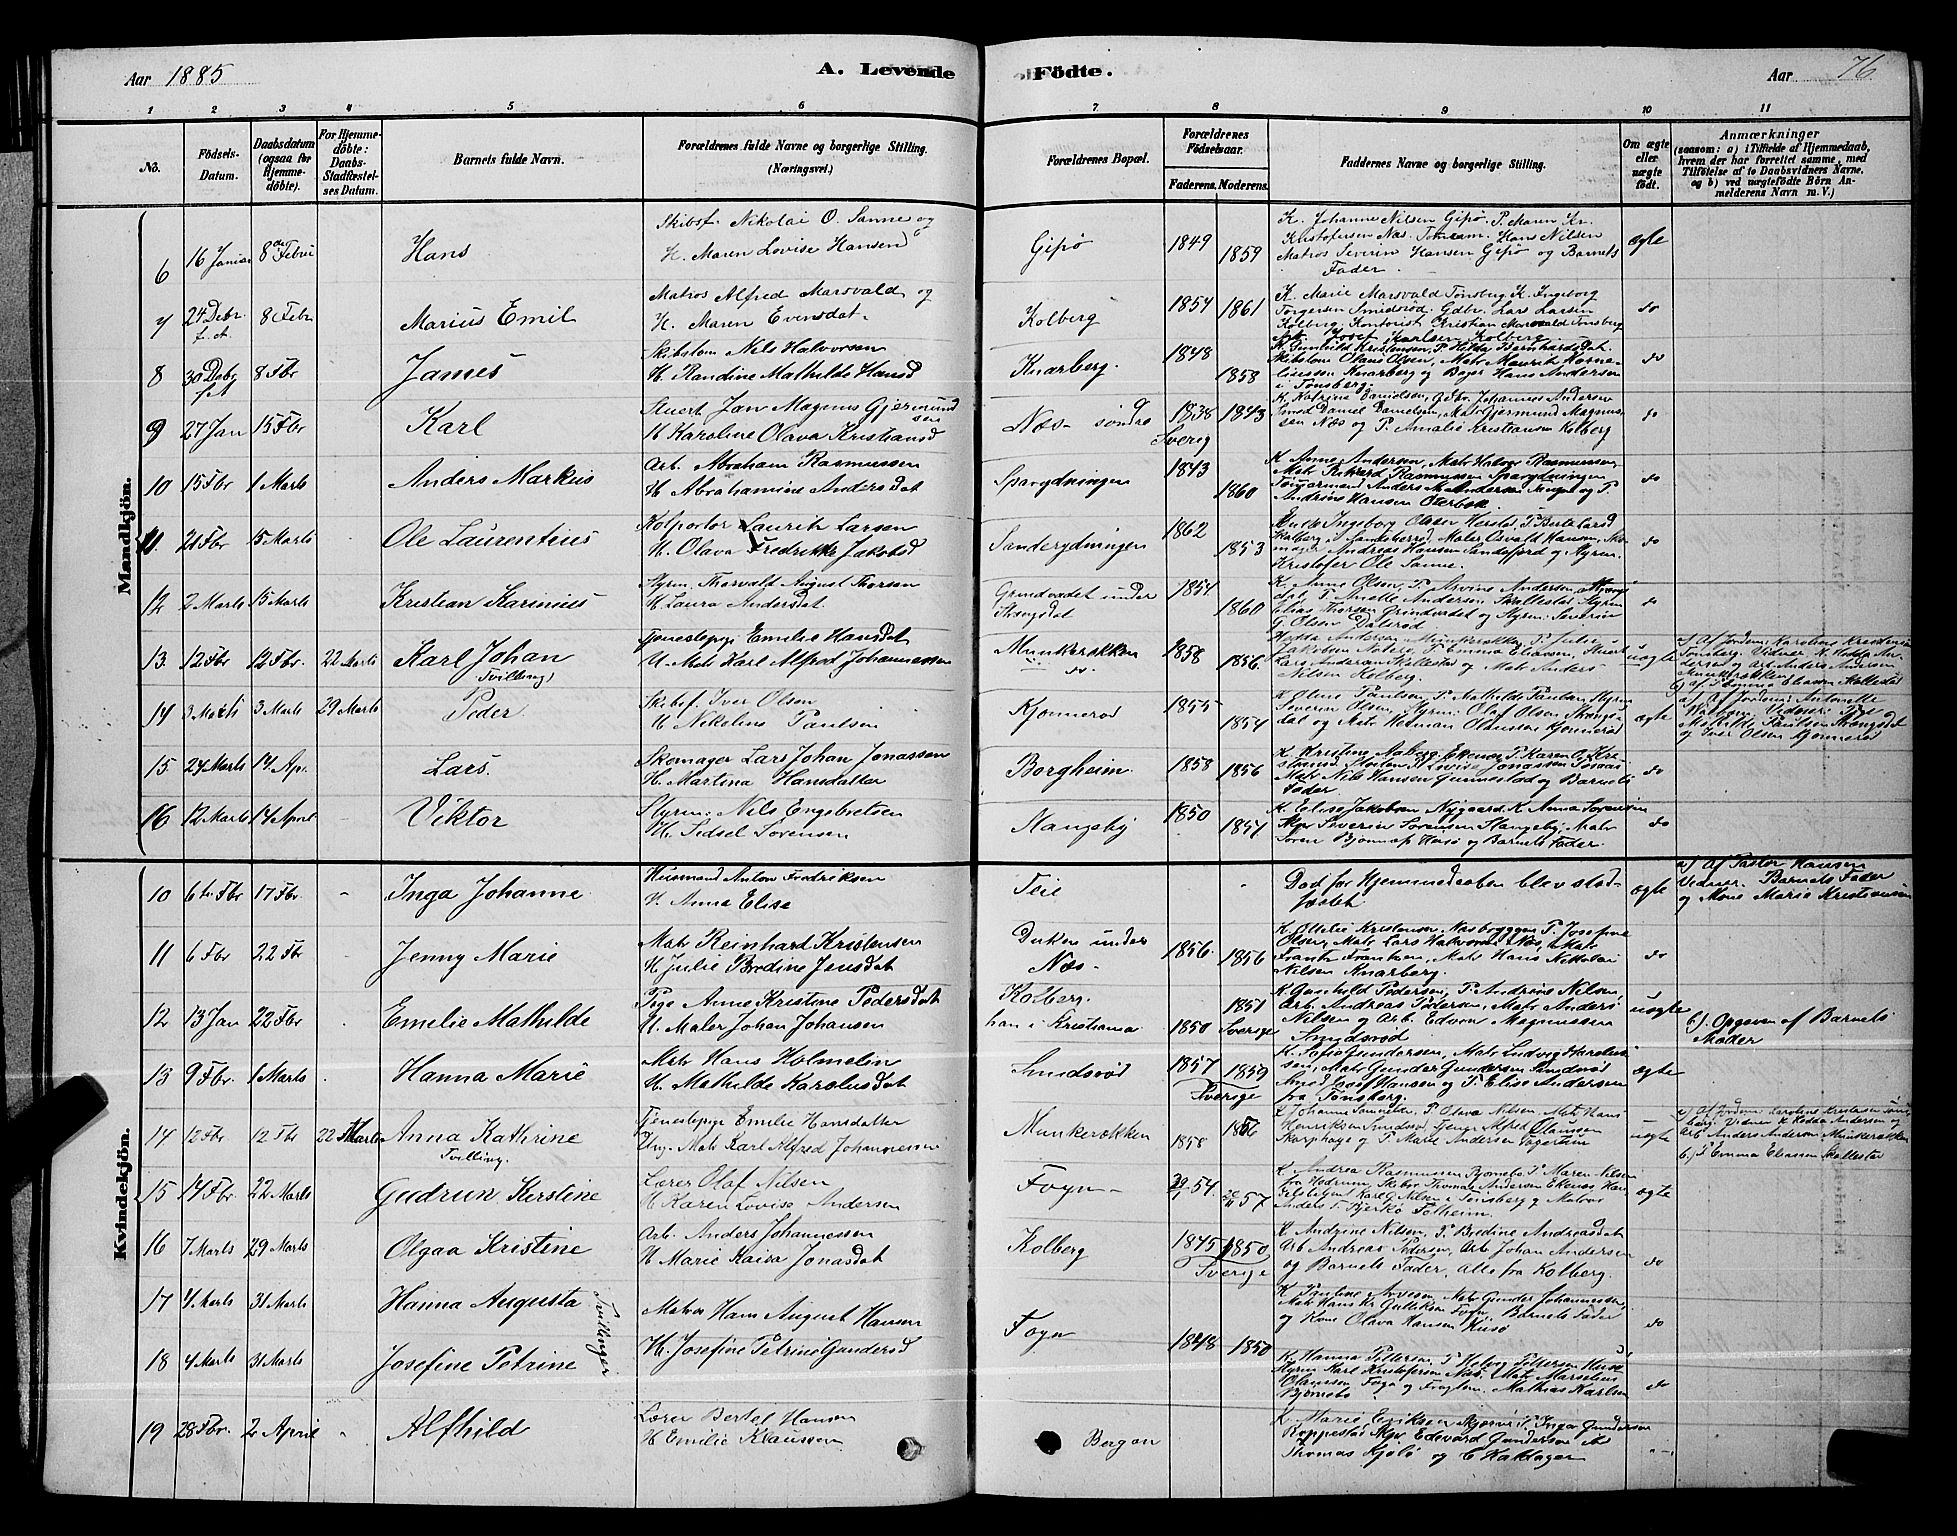 Aar 1885
A. Levende
Födte.
Aar 76
1 2 3 4 5 6 7 8 9 10 11
No.
Födsels-Datum.
Daabsdatum (ogsaa for Hjemmedöbte).
For Hjemmedöbte: Daabs-Stadfæstelses Datum.
Barnets fulde Navn.
Forældrenes fulde Navne og borgerlige Stilling. (Næringsvei.)
Forældrenes Bopæl.
Forældrenes Födselsaar.
Faderens. Moderens.
Faddernes Navne og borgerlige Stilling.
Om ægte eller uægte födt.
Anmærkninger
(saasom: a) i Tilfælde af Hjemmedaab, hvem der har forrettet samme, med Tilföielse af to Daabsvidners Navne. og b) ved uægtefödte Börn Anmelderens Navn m. V.)
Mandkjön.
6 16 Januar 8de Febru Hans
Skibsf. Nikolai O. Sanne og
H. Maren Lovise Hansen
Gipø 1849 1859
K. Johanne Nilsen Gipø. P. Maren Kr.
Kristofersen Næs. Hans Nilsen
Matros Severin Hansen Gipø og Barnets
Fader.
ægte
7 24 Debr. f. A. 8 Febr Marius Emil
Matros Alfred Marsvald og
H. Maren Evensdat.
Kolberg 1854 1861
K. Marie Marsvald Tønsberg K. Ingeborg
Torgersen Smidsrød. Gdbr. Lars Larsen
Kolberg, Kontorist Kristian Marsvald Tønsberg
Josef Karlsen Kolberg
do
8 30 Debr f A 8 Fbr James
Skibstøm Nils Halvorsen
H. Randine Mathilde Hansd
Knarberg. 1848 1858
K. Gunhild Kristensen, P. Hilda Bernhardsdat.
Skibstøm Olaus Olsen, Matr Maurits
Knarberg og Bager Hans Andersen
i Tønsberg.
do
9 27 Jan 15 Fbr Karl
Stuert Jan Magnus Gjermundsen
H Karoline Olava Kristiansd
Næs söndre 1838 1843
Sverig
K. Katrine Danielsen, Gdbr. Johannes Andersen
Smed Daniel Danielsen, Matr Gjermund Magnussen
Næs og P. Amalie Kristiansen Kolberg
do
10 15 Fbr 1 Marts Anders Markus
Arb. Abraham Rasmussen
H Abrahamine Andersdat
Sparydningen 1843 1860
K Anne Andersen, Matr Halvor Rasmussen,
Matr Rikard Rasmussen Sparydningen
Anders M Andersen og P.
Andrine Hansen Oterbæk
do
11. 21 Fbr 15 Marts Ole Laurentius
Kolportør Laurits Larsen
H. Olava Fredrikke Jakobsd
Sanderydningen 1862 1853
Ingeborg Olsen P. Berte Larsd
Kolberg Maler Osvald Hansen, Skomager
Andreas Hansen Sandefjord og Styrm.
Kristofer Ole Sanne.
do
12 2 Marts 15 Marts Kristian Karinius
Styrm. Thorvald August Thorsen
H. Laura Andersdat.
Grindvædet under 1854 1860
K. Anne Olsen, P. Alvine Andersen
P. Anette Andersen Skallestad Styrm
Elias Thorsen Grindvædet og Styrm. Severin
G. Olsen Dalsrød
do
13. 12 Fbr 12 Fbr. 22 Marts Karl Johan
Tvilling)
Tjenestepige Emilie Hansdat
U. Matr Karl Alfred Johannessen
Munkerækken 1858 1856.
do
Hedda Andersen Munkerækken P. Julie
Jakobsen P. Emma Eliassen, Stuert
Lars Andersen Skallestad og Matr Anders
Nilsen Kolberg.
uægte
a) Af Jordem: Karoline Kristensen
Tønsberg. Vidner K. Hedda Andersen
og Arb. Anders Andersen
Munkerækken
b) af P Emma Eliassen Skallestad
14 3 Marts 3 Marts 29 Marts Peder
Skibsf. Iver Olsen
H Nikoline Paulsen
Kjonnerød 1855 1854
K Oline Paulsen, P. Mathilde Paulsen Styrm
Severin Olsen, Styrm: Olaf Olsen
og Matr Herman Olaussen Kjonnerød
ægte
a) Af Jordem: Antonette
Vidner: Pige
Mathilde Paulsen
og Iver Olsen Kjønnerød
15. 24 Marts 14 Ap. Lars.
Skomager Lars Johan Jonassen
H. Martina Hansdatter
Borgheim. 1858 1856
K. Kristine Aaberg Ekenes P. Karen
P. Lovise Jonassen
Matr Nils Hansen Gunnestad og Barnets
Fader.
do
16 12 Marts 14 April Viktor
Styrm: Nils Engebretsen
H. Sidsel Sørensen
Stangeby 1850 1851
K. Elise Jakobsen Nygaard K. Anna Sørensen
Skpr Severin Sørensen Stangeby, Matr
Søren Husø og Barnets Fader.
do
Kvindekjön.
10 6te Fbr 17 Fbr. Inga Johanne
Husmand Anton Fredriksen
H. Anna Elise
Teie -
Død før Hjemmedaaben blev stad-
fæstet
ægte
a) af Pastor Hansen
Vidner. Barnets Fader
og Kone Marie Kristiansen
11 6 Fbr 22 Fbr Jenny Marie
Matr Reinhard Kristensen
H Julie Bredine Jensdat
Duken under
Næs- 1856. 1856
K. Ottilie Kristensen, Næsbryggen P. Josefine
Olsen, Matr Lars Halvorsen Næs, Matr
Frants Frantsen, Matr Hans Nikolai
Nilsen Knarberg.
do
12 13 Jan 22 Fbr Emelie Mathilde
Pige Anne Kristine Pedersdat
U. Maler Johan Johansen
Kolberg. 1851
han i Kristiania 1850 Sverige
K Gunhild Pedersen, P. Andrine Nilsen,
Arb. Andreas Pedersen, Matr Anders
Nilsen og Arb. Edvin Magnussen
Smidsrød
uægte
b). Opgiven af Barnets
Moder
13 9 Fbr. 1 Marts Hanna Marie
Matr Hans Holmelin
H. Mathilde Karolusdat
Smidsrød 1857 1859
Sverige
K. Sofie Gundersen, Matr Ludvig Karolus-
sen, Matr Gunder Gundersen Smidsrød
Smed Josef Hansen og P. Elise Andersen
fra Tønsberg.
ægte
14 12 Fbr 12 Fbr 22 Marts Anna Kathrine
Tvilling.
Tjenestepige Emilie Hansdatter
Ung. Matr Karl Alfred Johannessen
Munkerækken 1858 1856
K Johanne P. Olava Nilsen. Matr Hans
Henriksen Smidsrød, Alfred Olaussen
Skarphage og P. Marie Andersen Fogertun
uægte
a) Af Jordem Karoline Kristensen Tøns-
berg. Vidner K Hedda Andersen og
Arb Anders Andersen Munkerækken
b) P Emma Eliassen Skallestad
15 14 Fbr. 22 Marts Gudrun Kerstine
Lærer Olaf Nilsen
H Karen Lovise Andersen
Føyn 54. 57
K. Andrea Rasmussen Bjørnebo P. Maren Nilsen
fra Hedrum, Skibsr Thomas Andersen Ekenes Han-
delsbetjent Karl G Nilsen i Tønsberg og Matros
Anders T. Bjerkø Tolheim.
ægte
16 7 Marts 29 Marts Olgaa Kristine
Arb. Anders Johannessen
H Marie Kaisa Jonasdat
Kolberg 1845 1850
Sverige
K Andrine Nilsen, P Bredine Andreasdat
Arb Andreas Pedersen, Arb Johan Andersen
og Barnets Fader, alle fra Kolberg.
do
17 4 Marts 31 Marts Hanna Augusta
Tvillinger
Matros Hans August Hansen
H. Josefine Petrine Gundersd
Føyn 1848 1850
K Pauline Arvesen, Matr Gunder Johannessen,
Matr Hans Kr Gulliksen Føyn, Barnets Fader
og Kone Olava Hansen Husø
do
18 4 Marts 31 Marts Josefine Petrine
K. Hanna Pettersen, P Helvig Pettersen Husø
Styrm Karl Kristofersen Næs, Matr Marselius
Olaussen Føyn og Mathias Karlsen
Bjørnebo
do
19 28 Fbr. 2 April Alfhild
Lærer Bertel Hansen
H Emilie Klaussen
Bergan
K. Marie Eriksen P. Inga Gundersen
Roppestad Skpr Edvard Gundersen
Thomas Kjølø og E Haldager